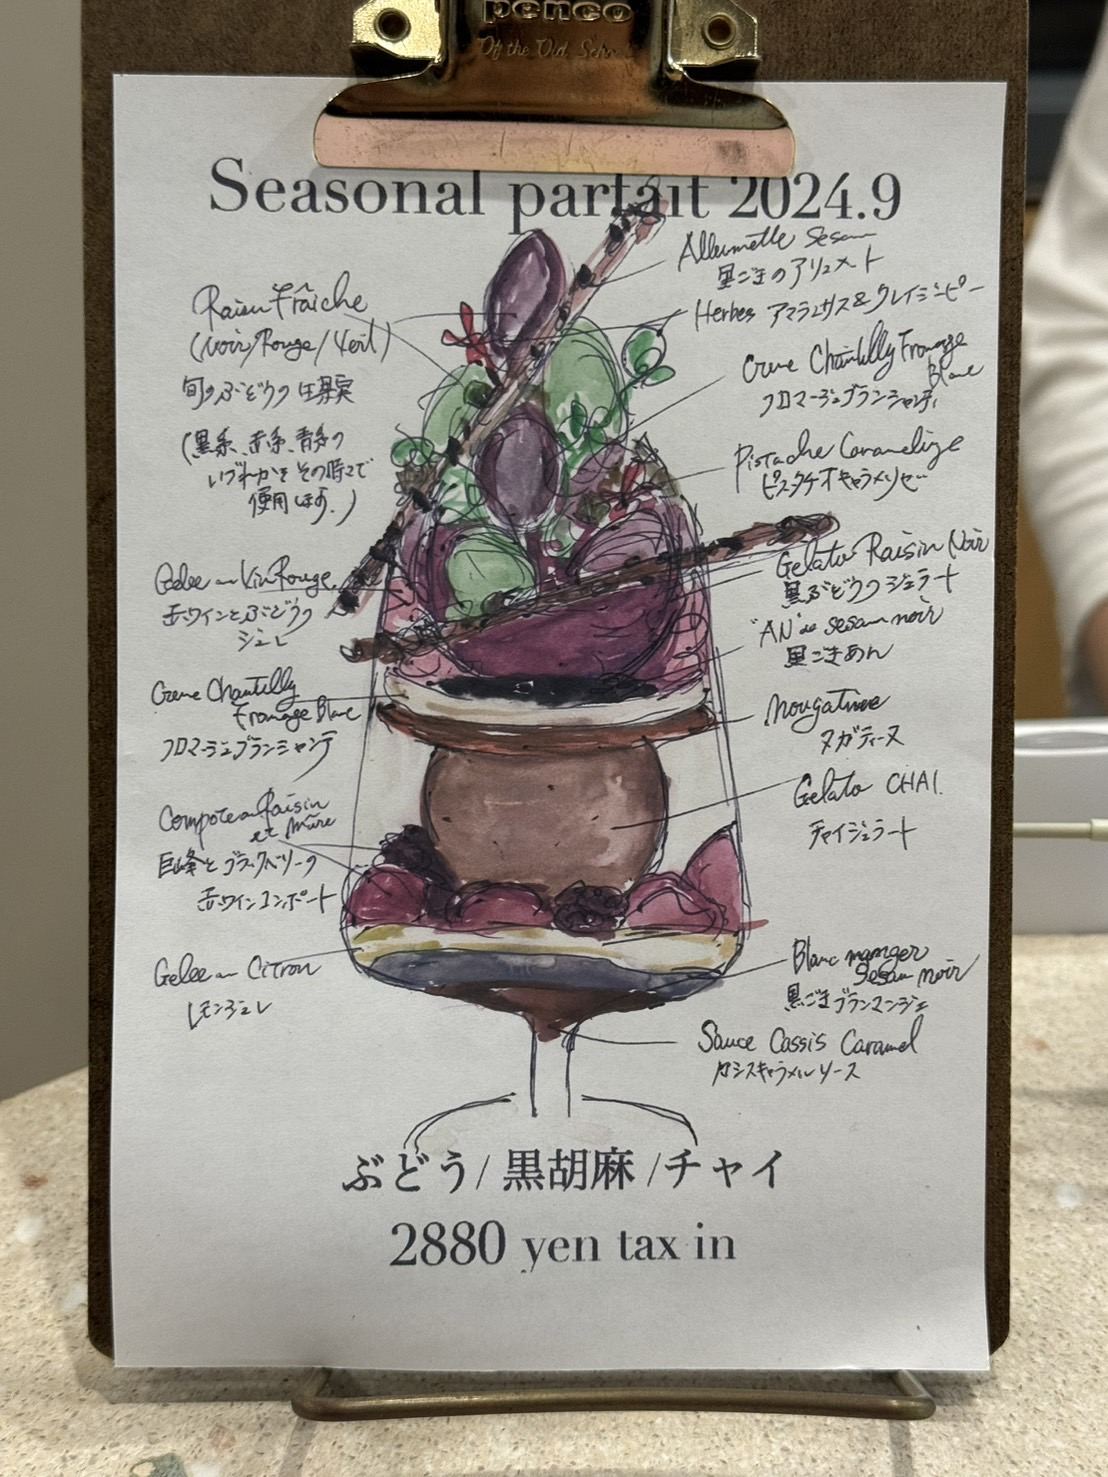 penco
Of the Old School
Seasonal parfait 2024.9
Allumette Sesam
黒ごまのアリュメット
Herbes アマランサス&クレイジーピー
Creme Chantilly Fromage
Blanc
フロマージュブランシャンティ
Pistache Caramelize
ピスタチオキャラメリゼ
Gelato Raisin Noir
黒ぶどうのジェラート
"AN" de sesam noir
黒ごまあん
Nougatine
ヌガティーヌ
Gelato CHAI.
チャイジェラート
Blanc manger
Sesam noir
黒ごまブランマンジェ
Sauce Cassis Caramel
カシスキャラメルソース
Raisin Fraîche
(Noir/Rouge/Vert)
旬のぶどうの生果実
(黒系、赤系、青系の
いづれかをその時々で
使用します。)
Gelee au Vin Rouge
赤ワインとぶどうの
ジュレ
Creme Chantilly
Fromage Blanc
フロマージュブランシャンテ
Compote au Raisin
et Mûre
巨峰とブラックベリーの
赤ワインコンポート
Gelee au Citron
レモンジュレ
ぶどう/黒胡麻/チャイ
2880 yen tax in